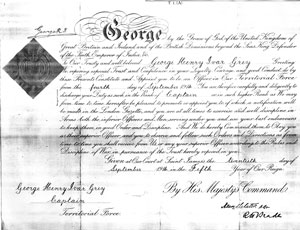 George R.I.
George by the Grace of God, of the United Kingdom of
Great Britain and Ireland and of the British Dominions beyond the Seas King, Defender
of the Faith, Emperor of India, &c.
To Our Trusty and well beloved George Henry Ivar Grey Greeting
reposing especial Trust and Confidence in your Loyalty, Courage, and good Conduct, do by
these Presents Constitute and Appoint you to be an Officer in Our Territorial Force
from the fourth day of September 1914. You are therefore carefully and diligently to
discharge your Duty as such in the Rank of Captain or in such higher Rank as We may
from time to time hereafter be pleased to promote or appoint you to of which a notification will be made
in the London Gazette, and you are at all times to exercise and well discipline in
Arms both the inferior Officers and Men serving under you and use your best endeavours
to keep them in good Order and Discipline. And We do hereby Command them to Obey you
as their superior Officer, and you to observe and follow such Orders and Directions as from
time to time you shall receive from Us or any your superior Officer according to the Rules and
Discipline of War, in pursuance of the Trust hereby reposed in you.
Given at Our Court at Saint James's the twentieth day of
September 1914 in the Fifth Year of Our Reign
By His Majesty's Command
George Henry Ivar Grey
Captain
Territorial Force